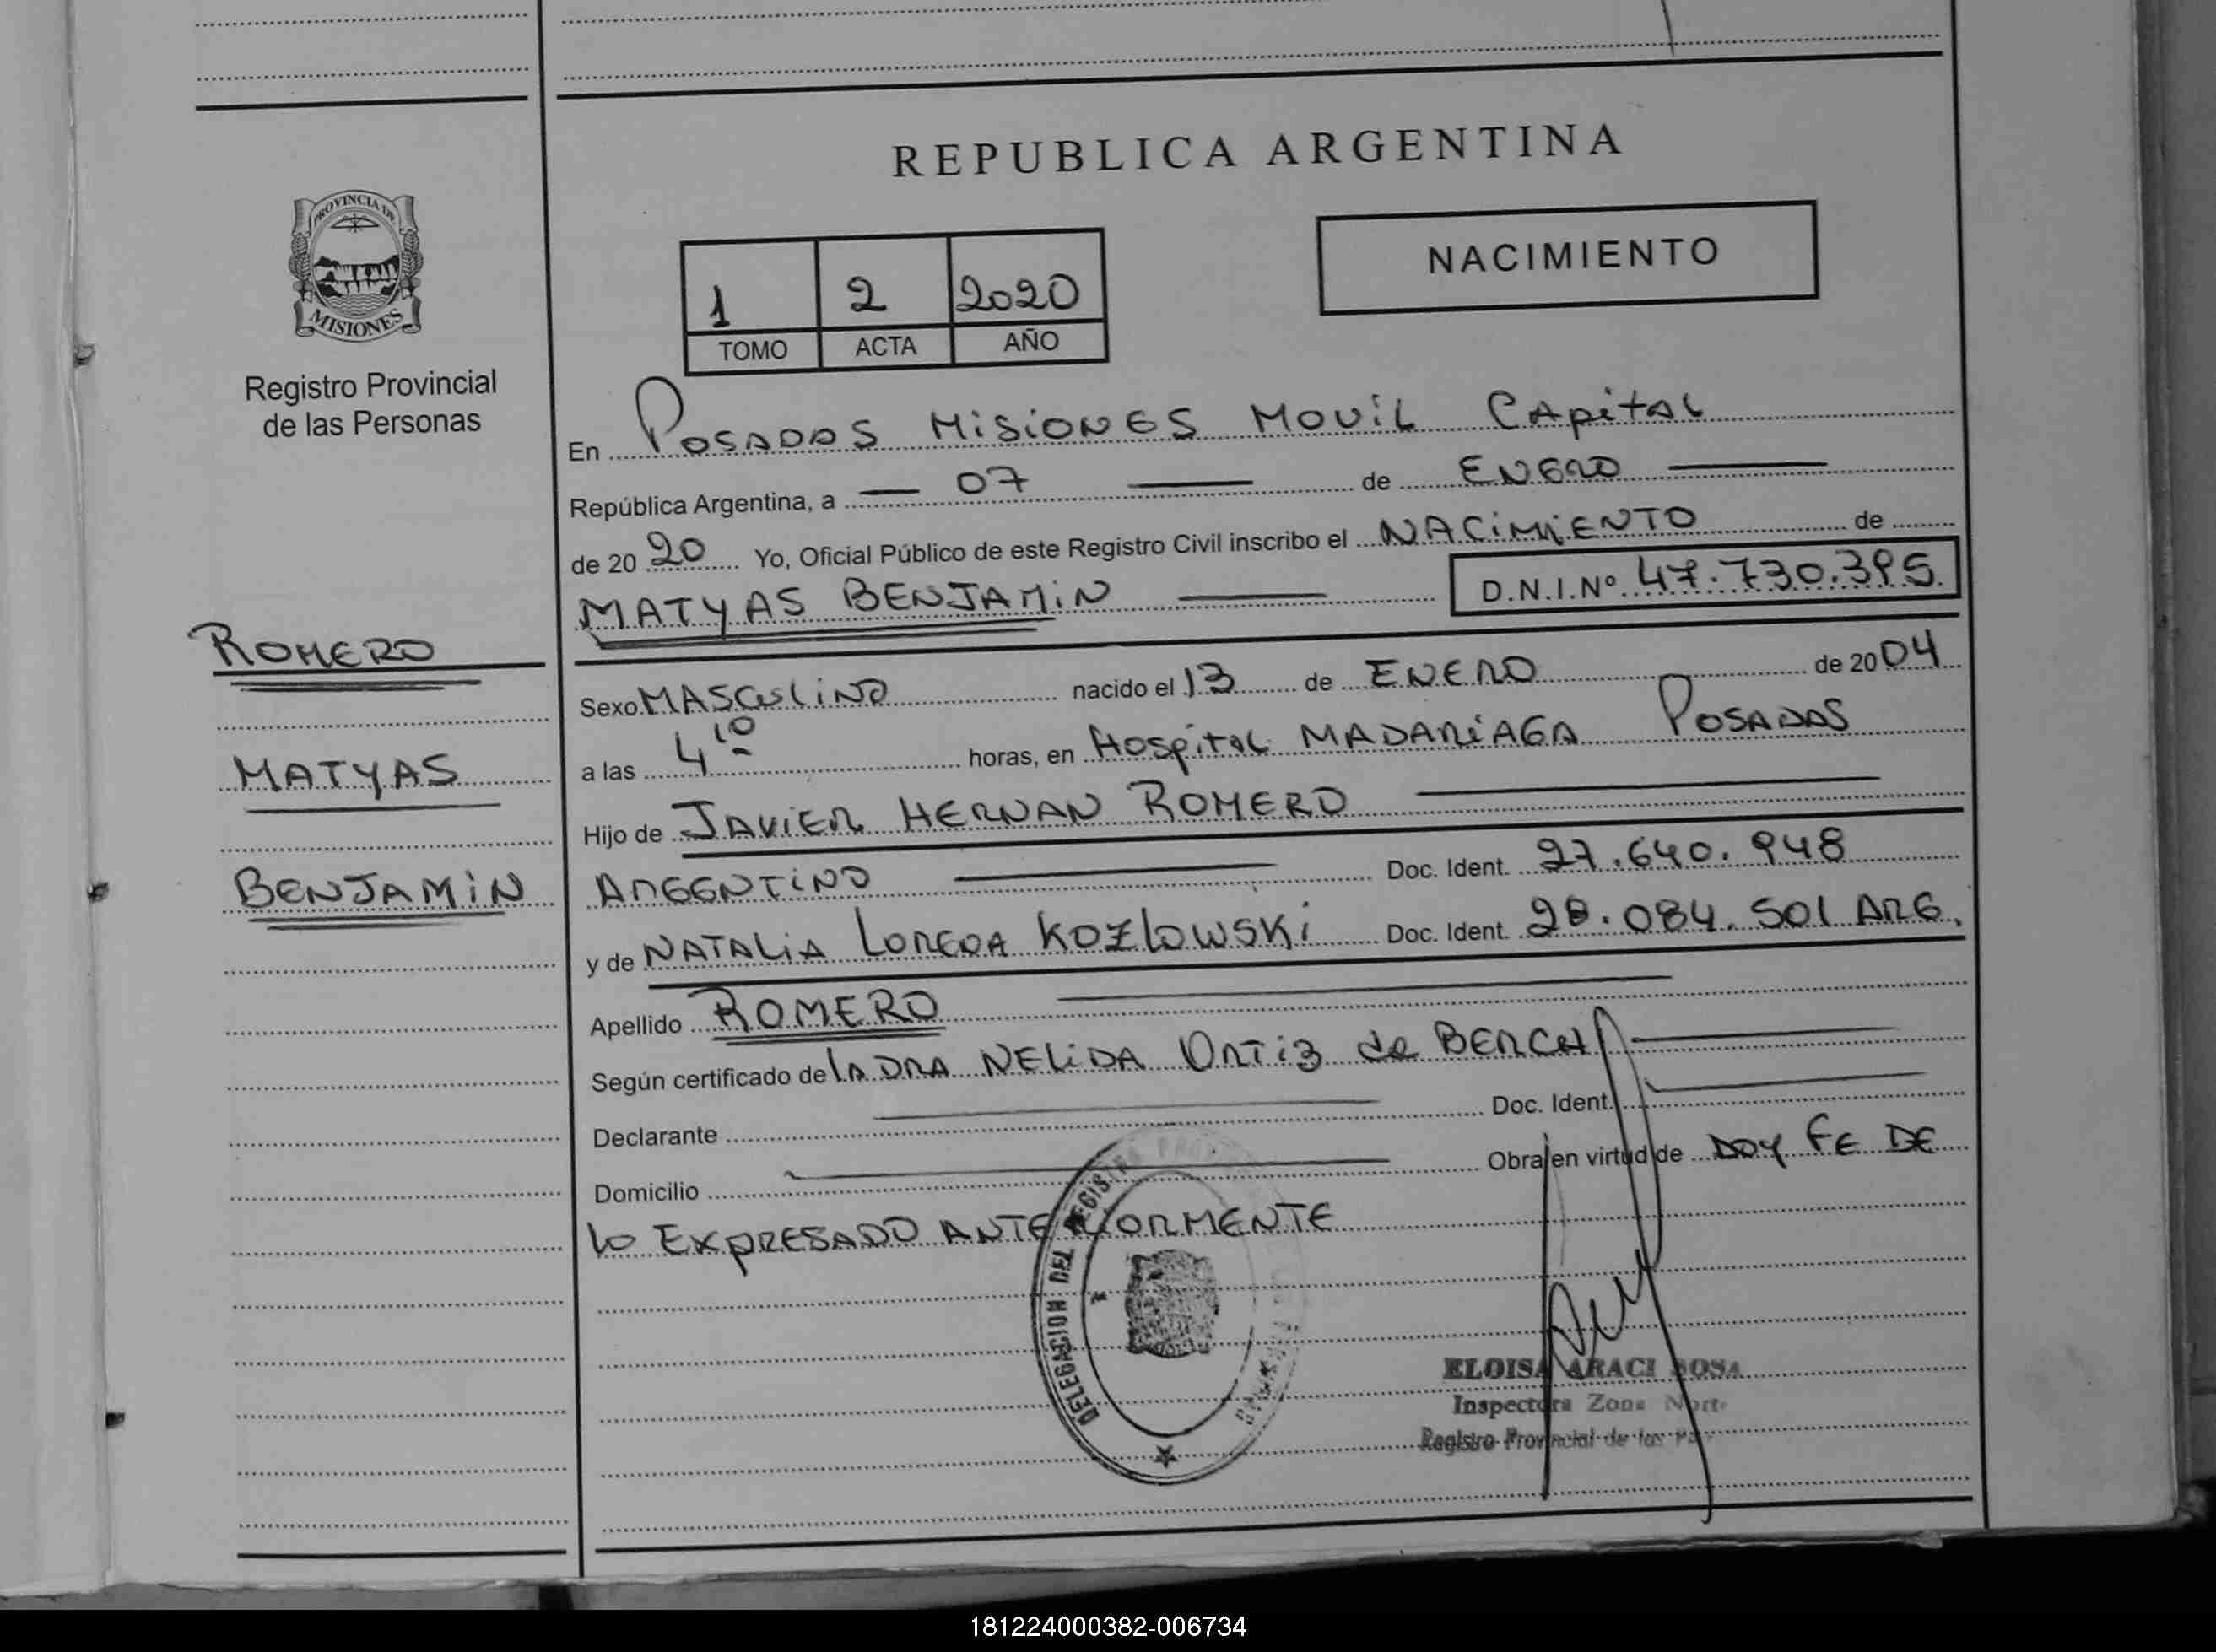 REPUBLICA ARGENTINA
PROVINCIA DE
MISIONES
Registro Provincial
de las Personas
NACIMIENTO
1 2 2020
TOMO ACTA AÑO
En POSADAS MISIONES MOVIL CAPITAL
República Argentina, a 07 de ENERO
de 2020 Yo, Oficial Público de este Registro Civil inscribo el NACIMIENTO de
MATYAS BENJAMIN D.N.I.Nº 47.730.395
ROMERO
MATYAS
BENJAMIN
Sexo MASCULINO nacido el 13 de ENERO de 2004
a las 4 10 horas, en HOSPITAL MADARIAGA POSADAS
Hijo de JAVIER HERNAN ROMERO
ARGENTINO Doc. Ident. 27.640.948
y de NATALIA KOZLOWSKI Doc. Ident. 28.084.501 ARG.
Apellido ROMERO
Según certificado de LA DRA NELIDA ORTIZ de
Declarante Doc. Ident.
Domicilio Obra en virtud de DOY FE DE
LO EXPRESADO ANTERIORMENTE
DELEGACION DEL REGISTRO
ELOISA ARACI SOSA
Inspectora Zona Norte
Registro Provincial de las
181224000382-006734